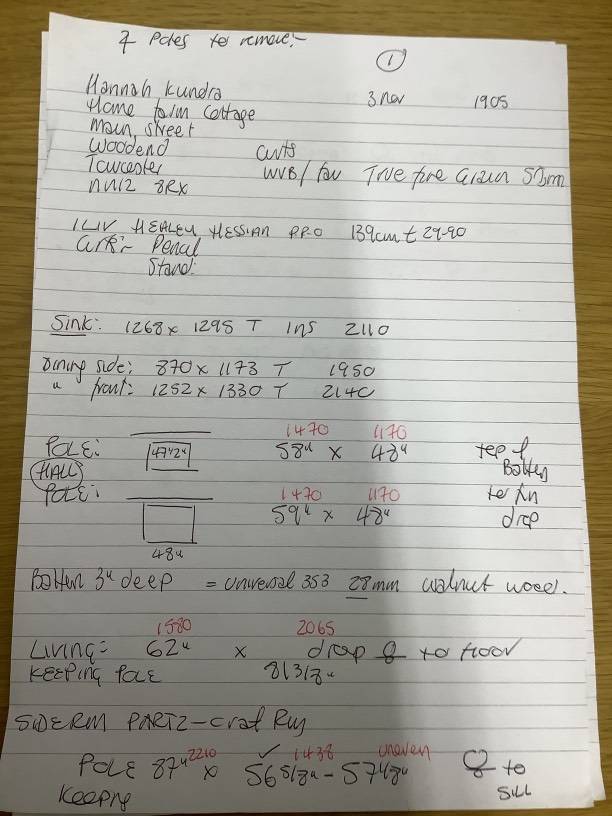 Poles to remove:-
1
Hannah Kundra 3 Nov 1905
Home farm Cottage
Main, street
Woodend curts
Towcester WVB/fav True fire
NN12 8RX
HEALEY HESSIAN PRO 139cm £ 29-90
Penal
Stand:
Sink: 1268 x 1295 T Ins 2110
Dining side: 870 x 1173 T 1950
" front: 1252 x 1330 T 2140
1470 1170
POLE: 47½" 58" x 48" top of
HALL Batten
1470 1170
POLE: 59" x 48" drop
48"
Batten 3" deep = universal 353 28mm walnut wood.
1580 2065
Living: 62" x drop to floor
KEEPING POLE 81 3/8"
2210 1438 uneven
POLE 87" x 56 5/8" - 57 1/8" to
Keeping SILL